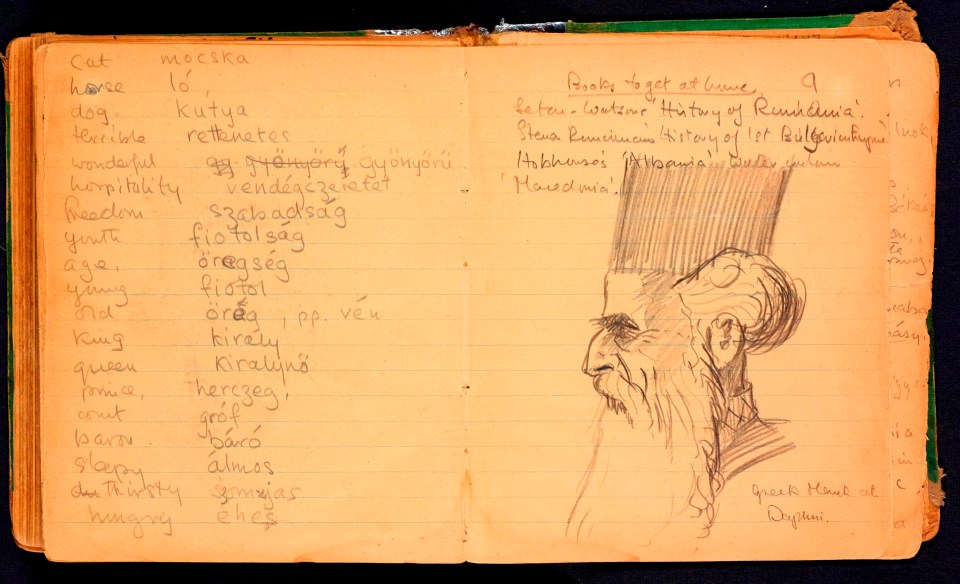 cat mocska
horse ló
dog kutya
terrible rettenetes
wonderful gyönyörű gyönyörű
hospitality vendégczeretet
freedom szabadság
youth fiotolság
age, öregség
young fiotol
old öreg, pp. vén
King király
queen királynő
prince, herczeg,
count gróf
baron. báró
sleepy álmos
thirsty szomjas
hungry éhes
Books to get at home. 9
Seton-Watsons' History of Rumania'.
History of 1st
Hobhouse's 'Albania'.
'Macedonia'.
Greek Monk at
Daphni.